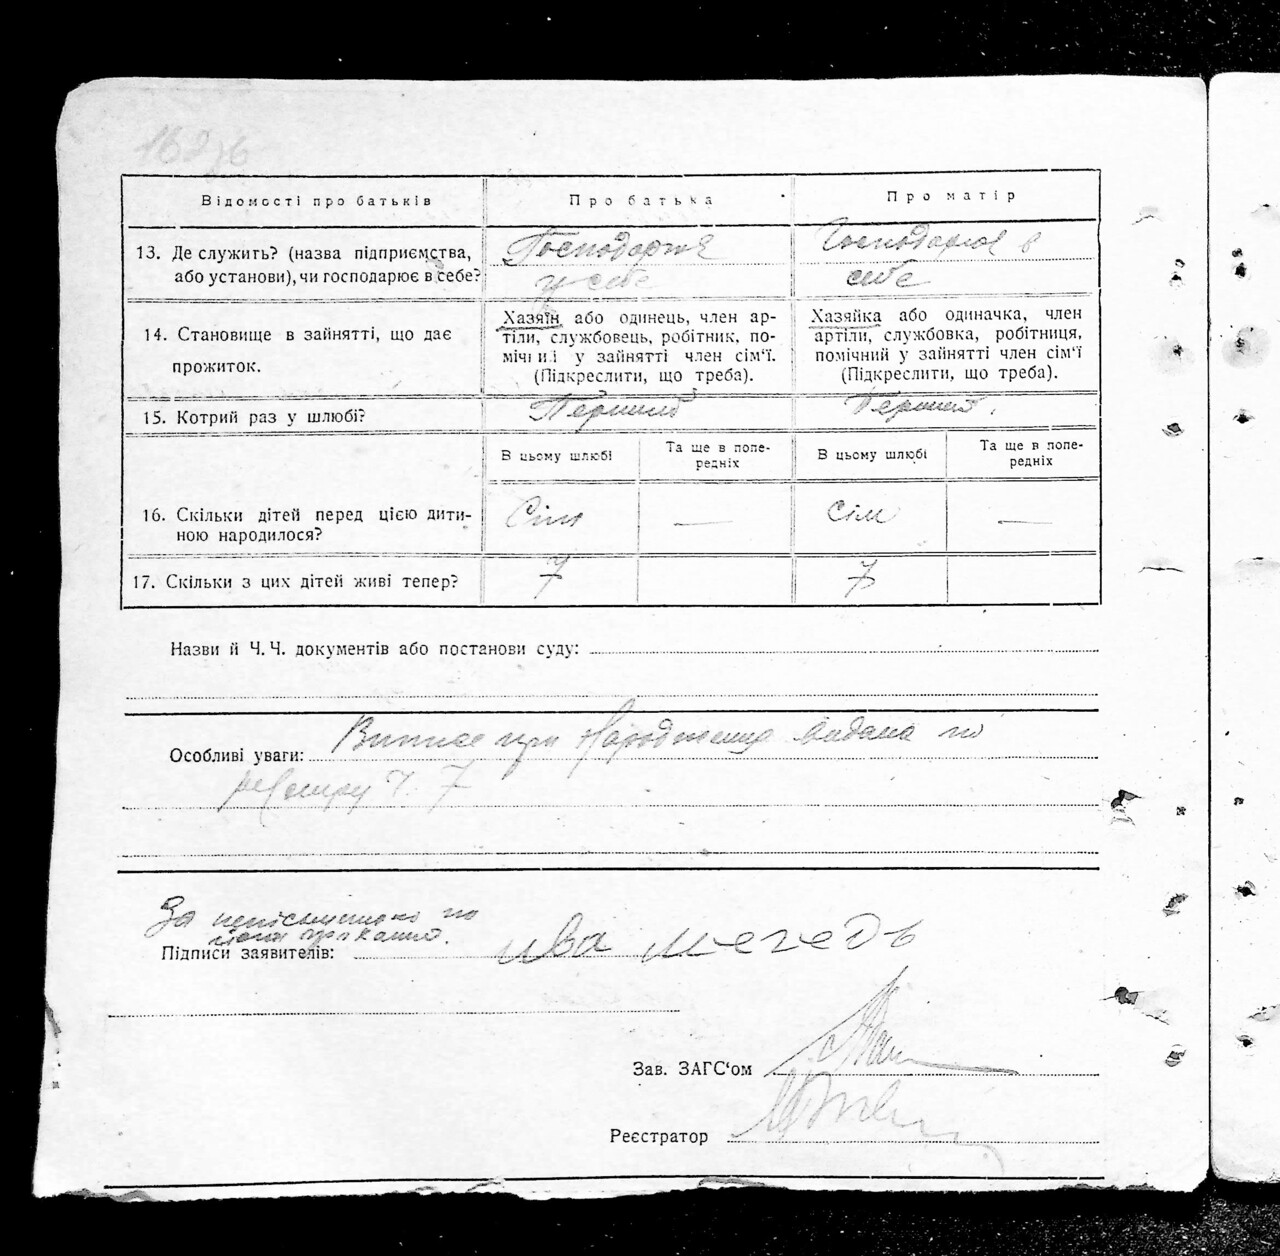 Відомості про батьків
Про батька
Про матір
13. Де служить? (назва підприємства, або установи), чи господарює в себе?
Господарює
у себе
Господарює в
себе
14. Становище в зайнятті, що дає прожиток.
Хазяїн або одинець, член ар-
тіли, службовець, робітник, по-
мічний у зайнятті член сім'ї.
(Підкреслити, що треба).
Хазяйка або одиначка, член
артіли, службовка, робітниця,
помічний у зайнятті член сім'ї
(Підкреслити, що треба).
15. Котрий раз у шлюбі?
Перший
Перший.
В цьому шлюбі
Та ще в попе-
редніх
В цьому шлюбі
Та ще в попе-
редніх
16. Скільки дітей перед цією дити-
ною народилося?
Сім
—
сім
—
17. Скільки з цих дітей живі тепер?
7
7
Назви й Ч. Ч. документів або постанови суду:
Особливі уваги: Випис про народження видана по
реєстру Ч. 7
За неписьменного по
його проханню.
Підписи заявителів: Ива мегедь
Зав. ЗАГС'ом
Реєстратор